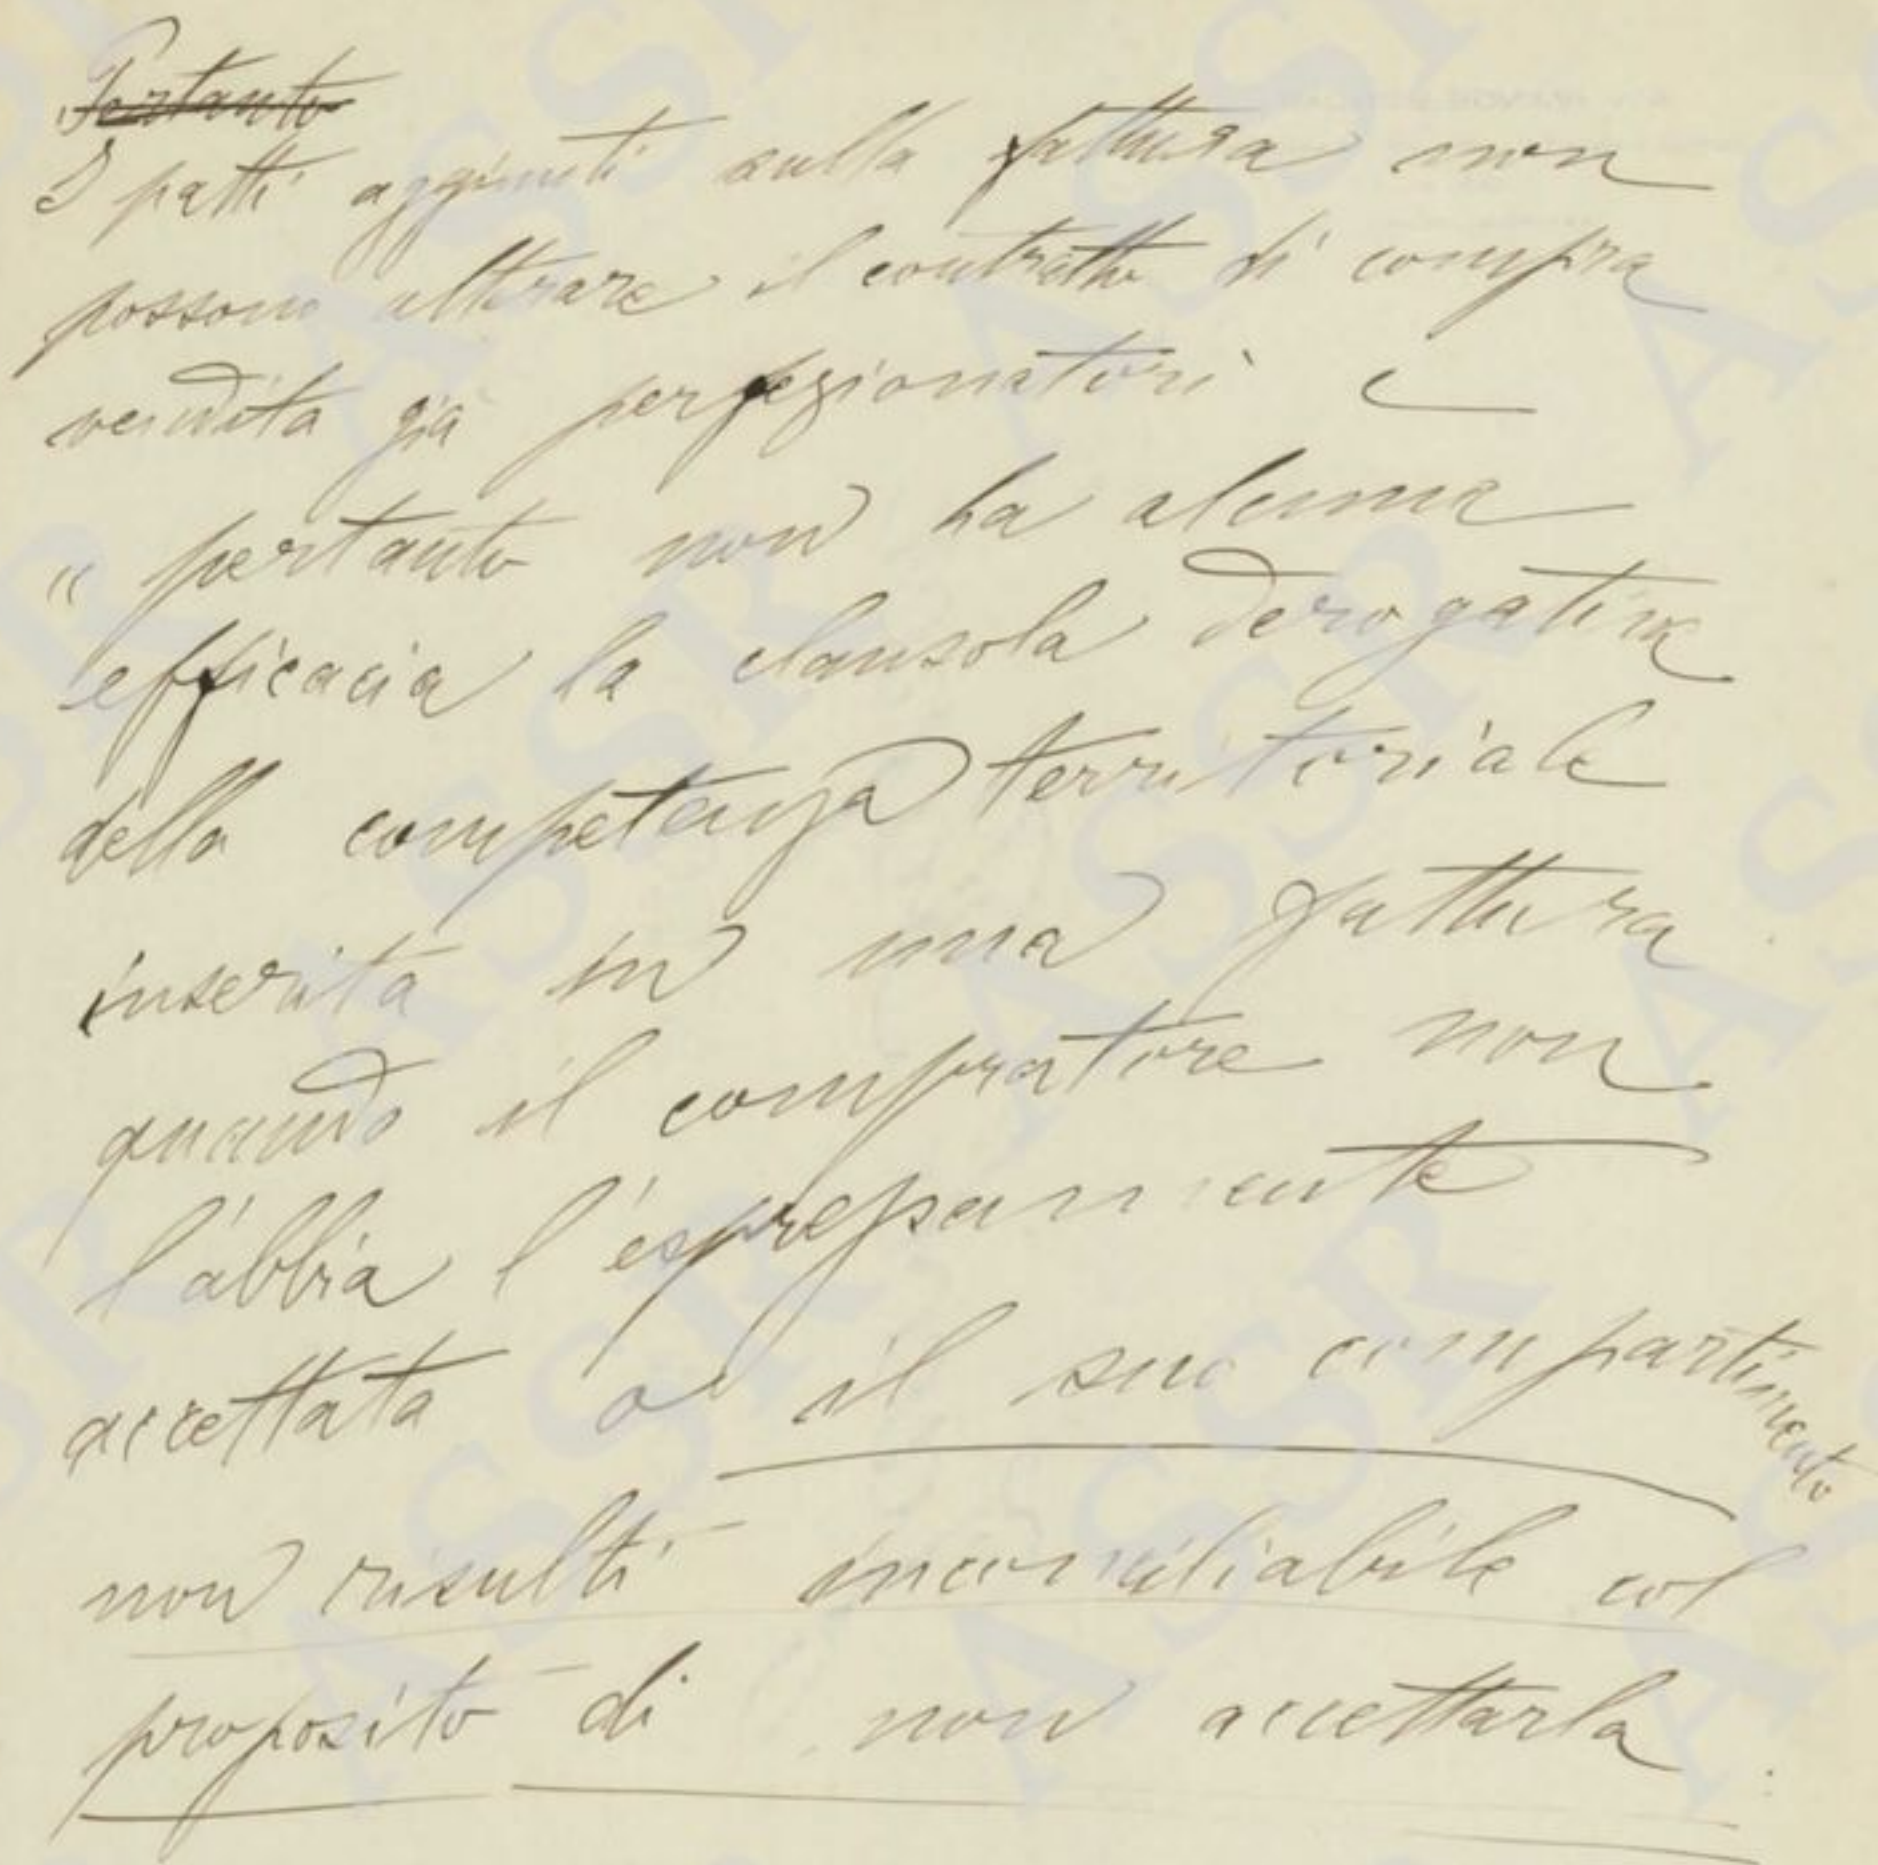 Pertanto
I patti aggiunti sulla fattura non
possono alterare il contratto di compra
vendita già perfezionatosi e
" pertanto non ha alcuna
efficacia la clausola derogativa
della competenza territoriale
inserita in una fattura
quando il compratore non
l'abbia l'espressamente
accettata o il suo compartimento
non risulti inconciliabile col
proposito di non accettarla.